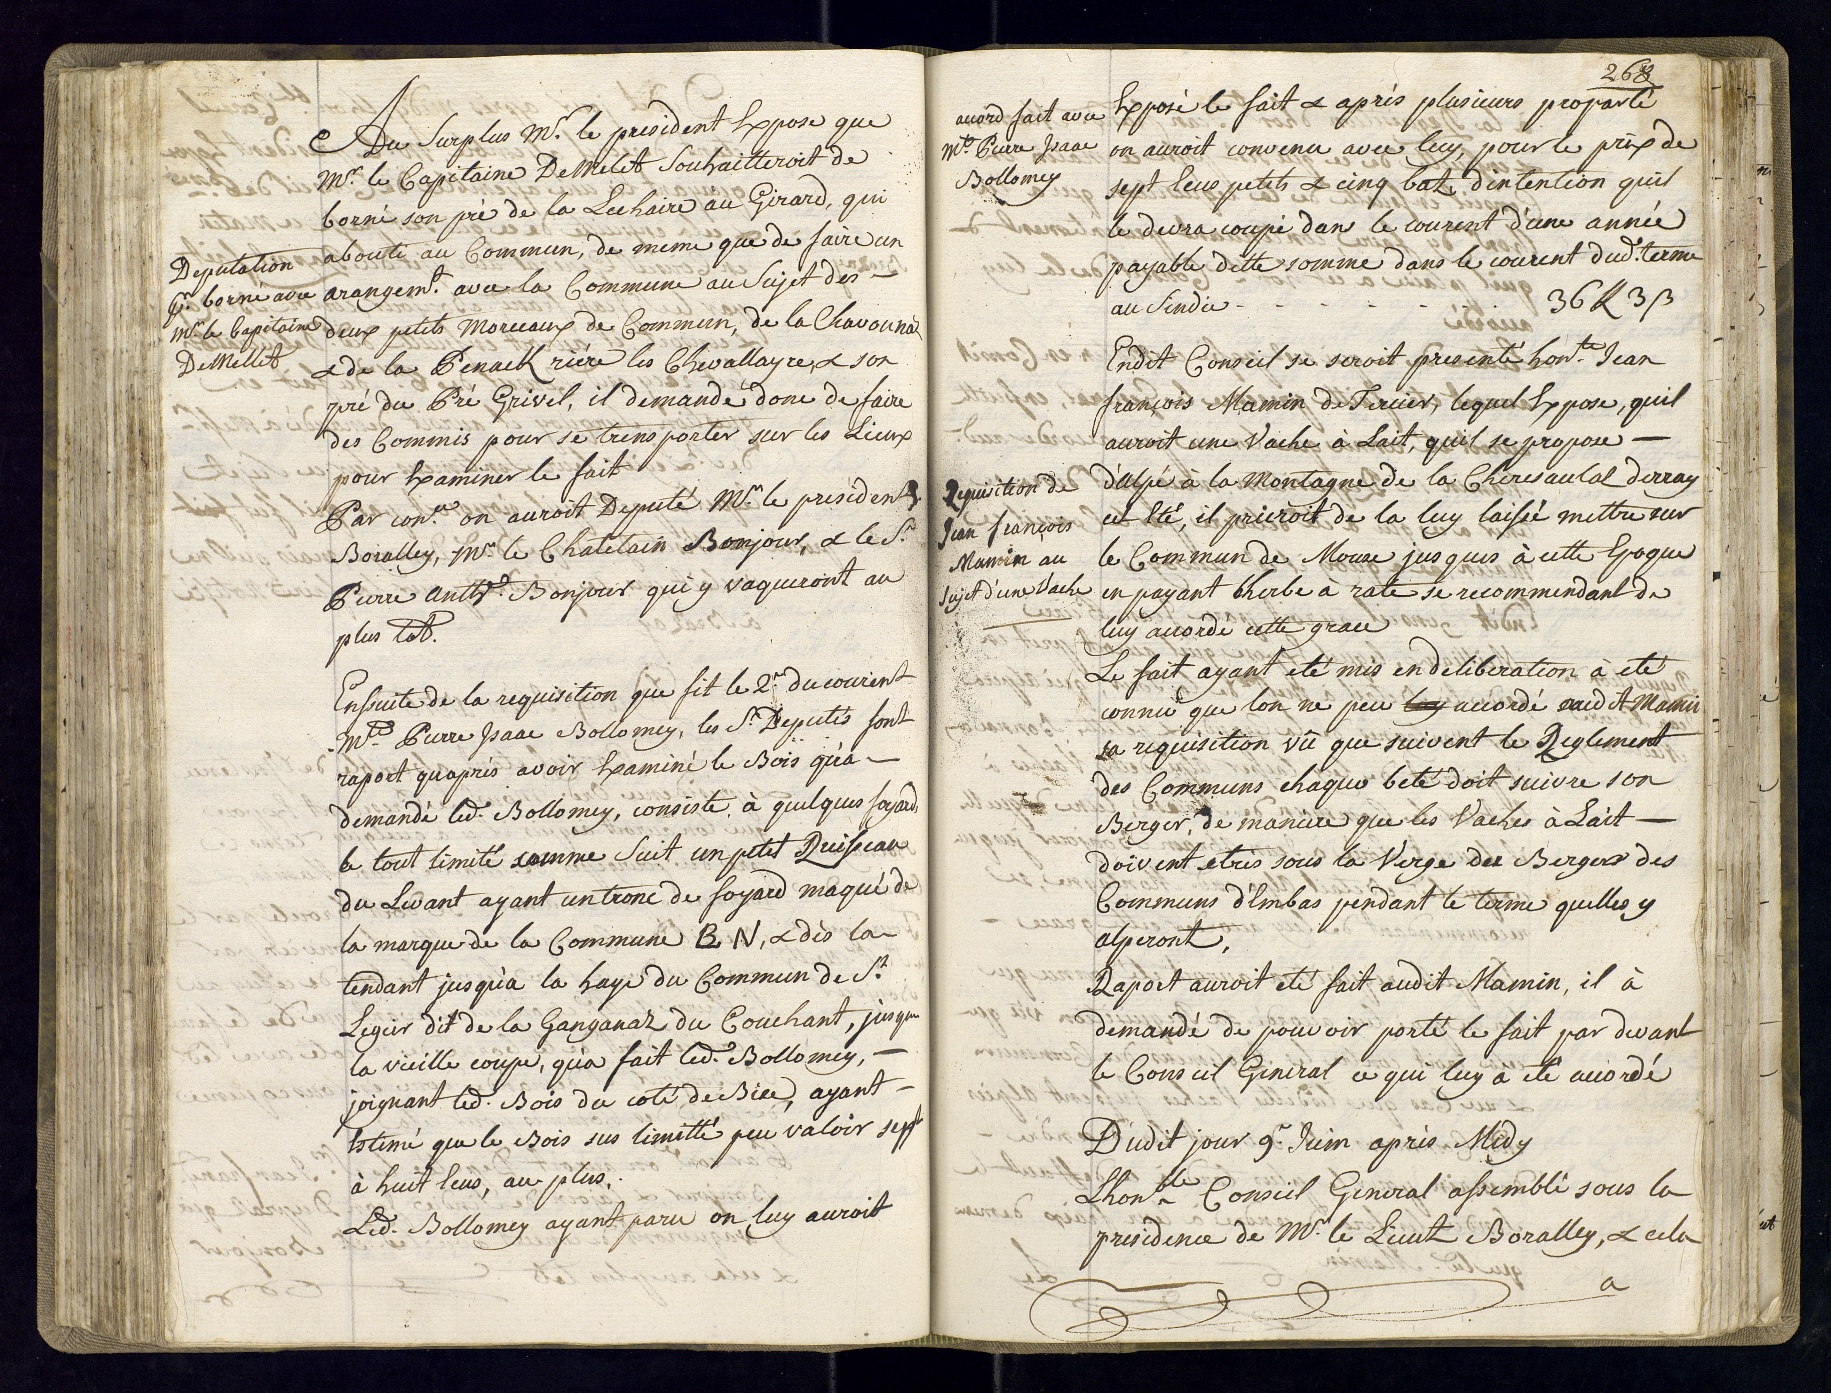 Au Surplus Mr. le president Expose que
Mr. le Capitaine DeMelet Souhaitteroit de
borné son pré de la Lechaire au Girard, qui
aboutit au Commun, de meme que de faire un
Deputation
pr. borné avec
Mr. le Capitaine
DeMellet
arangemt. avec la Commune au Sujet des
deux petits Morceaux de Commun, de la Chavonnaz
& de la rière les Chevallayre, & son
pré du Pré Grivel, il demande donc de faire
des Commis pour se trensporter sur les Lieux
pour Examiner le fait
Par conr. on auroit Deputé Mr. le president
Boralley, Mr. le Chatelain Bonjour, & le Sr.
Pierre Anthe. Bonjour qui y vaqueront au
plus tot.
Ensuite de la requisition que fit le 2r. du courent
Mre. Pierre Isaac Bollomey, les Srs. Deputés font
raport quaprés avoir Examiné le Bois qu'a
demandé led. Bollomey, consiste à quelques foyards
le tout limité comme Suit un petit Ruisseau
du Levant ayant un tronc de foyard maqué de
la marque de la Commune B N, & dès la
tendant jusqu'à la haye du Commun de St.
Legier dit de la Ganganaz du Couchant, jusque
la vieille coupe, qua fait led. Bollomey,
joignant led. Bois du coté de Bise, ayant
Estimé que le Bois sus limitté peu valoir sept
à huit Ecus, au plus.
Led. Bollomey ayant paru on luy auroit
268
acord fait avec
Mre. Pierre Isaac
Bollomey
Exposé le fait & aprés plusieurs proparlé
on auroit convenu avec luy, pour le prix de
sept Ecus petits & cinq batz. d'intention quil
le devra coupé dans le courent d'une année
payable dette somme dans le courent dud. terme
au Sindic - - - - - - 36 ß 3 ß
Endit Conseil se seroit presenté honte. Jean
françois Mamin de Tercier, lequel Expose, quil
auroit une Vache à Lait, quil se propose
d'alpé à la Montagne de la Cheresaulaz derray
Requisition de
Jean françois
Mamin au
Sujet d'une Vache
cet Eté, il prieroit de la luy laissé mettre sur
le Commun de Mouse jusques à cette Epoque
en payant l'herbe à rate se recommendant de
luy accordé cette grace
Le fait ayant eté mis en deliberation à eté
connu que lon ne peu luy accordé audit Mamin
sa requisition vû que suivent le Reglement
des Communs chaque beté doit suivre son
Berger, de maniere que les Vaches à Lait
doivent etres sous la Verge des Bergers des
Communs d'Embas pendant le terme quelles y
alperont,
Raport auroit eté fait audit Mamin, il à
demandé de pouvoir porté le fait par devant
le Conseil General ce qui luy à eté accordé
Dudit jour 9r. Juin aprés Midy
Lhonble. Conseil General assemblé sous la
presidence de Mr. le Lieut Boralley, & cela
a